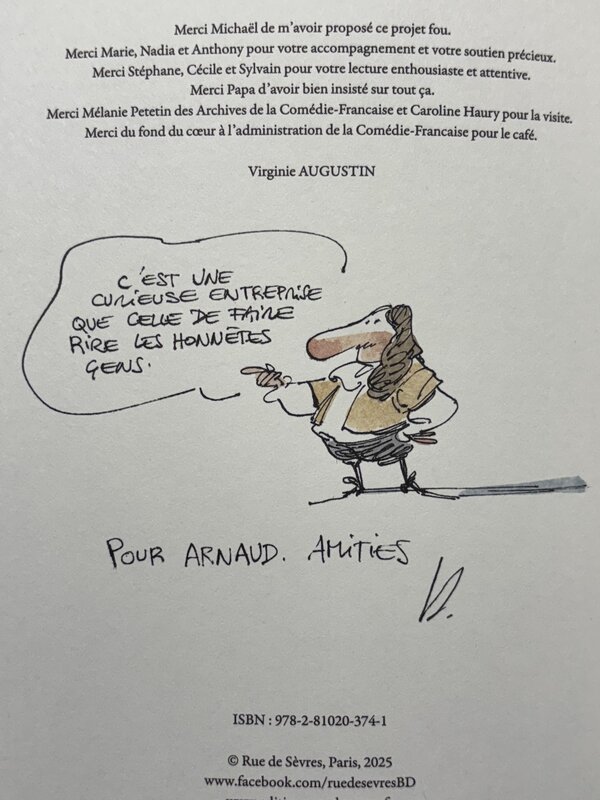 Merci Michaël de m'avoir proposé ce projet fou.
Merci Marie, Nadia et Anthony pour votre accompagnement et votre soutien précieux.
Merci Stéphane, Cécile et Sylvain pour votre lecture enthousiaste et attentive.
Merci Papa d'avoir bien insisté sur tout ça.
Merci Mélanie Petetin des Archives de la Comédie-Francaise et Caroline Haury pour la visite.
Merci du fond du cœur à l'administration de la Comédie-Francaise pour le café.
Virginie AUGUSTIN
C'EST UNE
CURIEUSE ENTREPRISE
QUE CELLE DE FAIRE
RIRE LES HONNÊTES
GENS.
POUR ARNAUD. AMITIES
ISBN : 978-2-81020-374-1
© Rue de Sèvres, Paris, 2025
www.facebook.com/ruedesevresBD